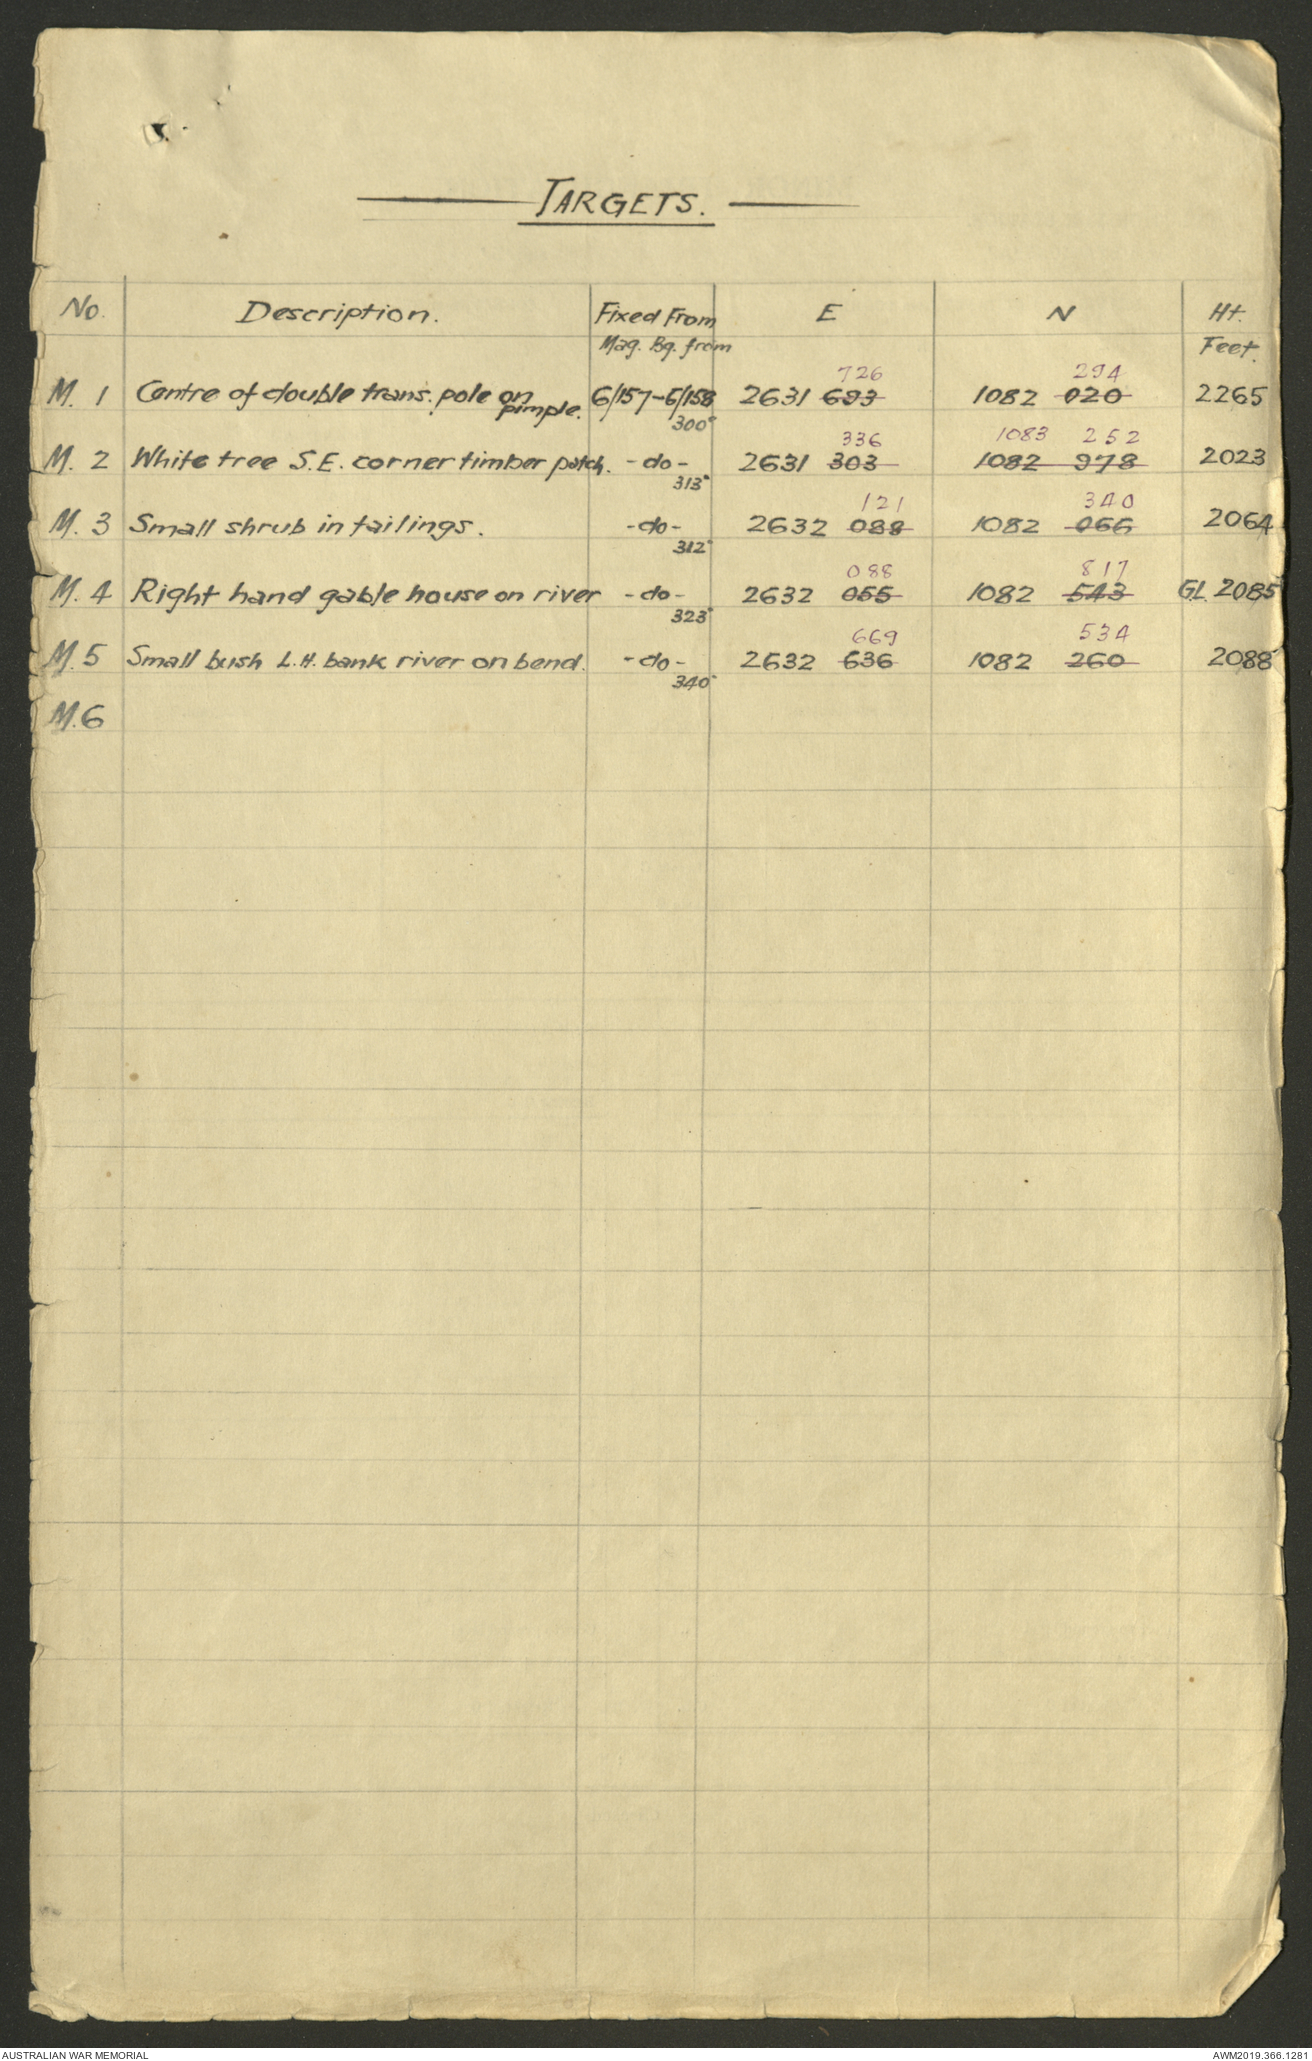 TARGETS.
No. Description. Fixed From E N Ht.
Mag. Bg. from Feet.
726 294
M. 1 Centre of double trans. pole on 6/157-6/158 2631 693 1082 020 2265
pimple. 300°
336 1083 252
M. 2 White tree S.E. corner timber patch. -do- 2631 303 1082 978 2023
313°
121 340
M. 3 Small shrub in tailings. -do- 2632 088 1082 066 2064
312°
088 817
M. 4 Right hand gable house on river -do- 2632 055 1082 543 GL. 2085
323°
669 534
M. 5 Small bush L.H. bank river on bend. -do- 2632 636 1082 260 2088
340°
M. 6
AUSTRALIAN WAR MEMORIAL AWM2019.366.1281